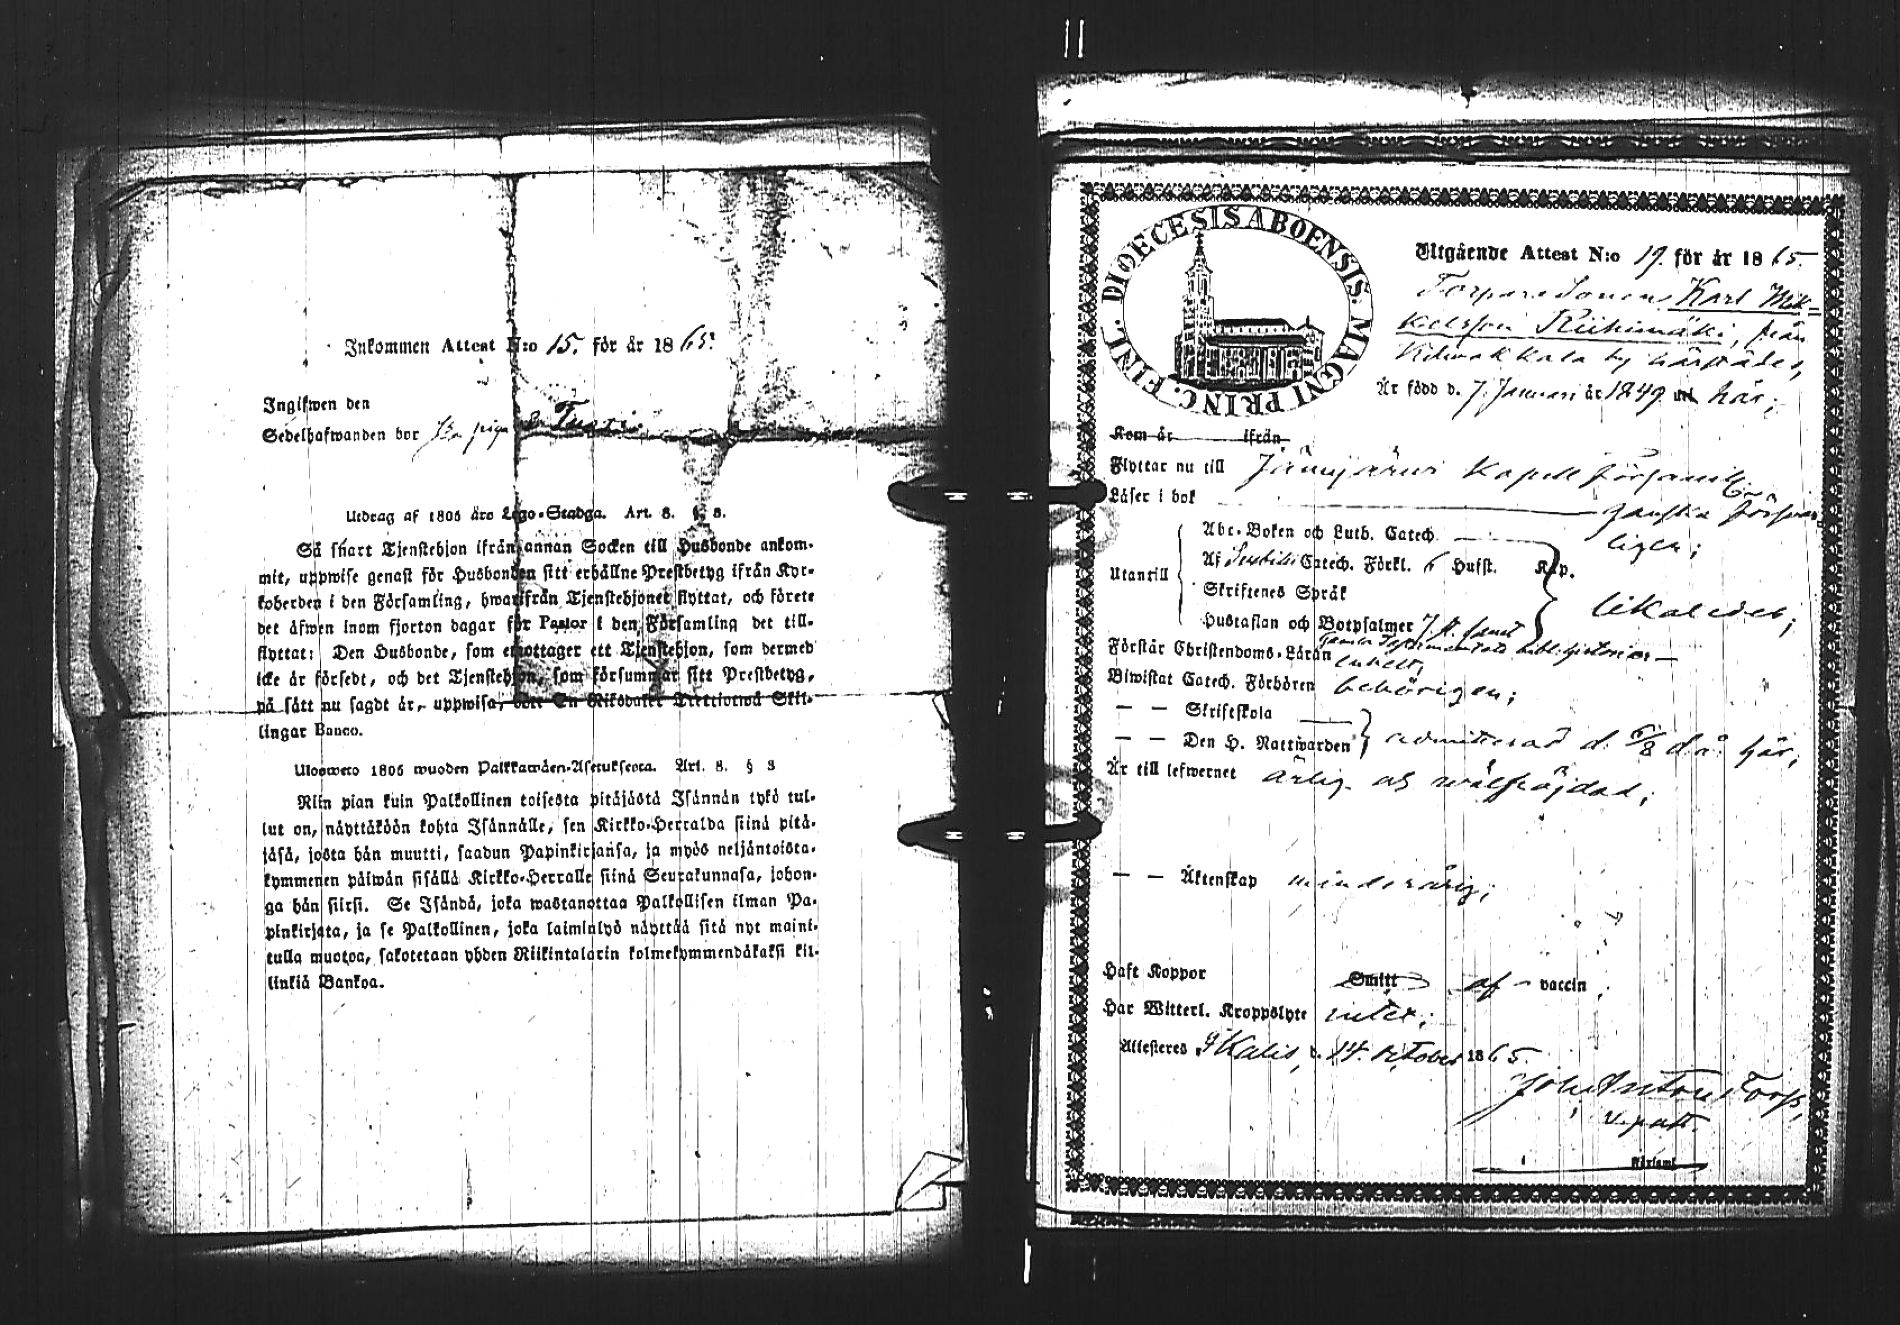 Inkommen Attest N:o 15. för år 1865.
Ingifwen den
Sedelhafwanden bor
Utdrag af 1805 års Lego-Stadga. Art. 8. § 8.
Så snart Tjenstehjon ifrån annan Socken till Husbonde ankom-
mit, uppwise genast för Husbonden sitt erhållne Prestbetyg ifrån Kyr-
koherden i den Församling, hwarifrån Tjenstehjonet flyttat, och förete
det äfwen inom fjorton dagar för Pastor i den Församling det till-
flyttat: Den Husbonde, som emottager ett Tjenstehjon, som dermed
icke är försedt, och det Tjenstehjon, som försummar sitt Prestbetyg,
på sätt nu sagdt är, uppwisa, böte En Riksdaler Trettiotwå Skil-
lingar Banco.
Ulosweto 1805 wuoden Palkkawäen-Asetuksesta. Art. 8. § 8
Niin pian kuin Palkollinen toisesta pitäjästä Isännän tykö tul-
lut on, näyttäköön kohta Isännälle, sen Kirkko-Herralda siinä pitä-
jäsä, josta hän muutti, saadun Papinkirjansa, ja myös neljäntoista-
kymmenen päiwän sisällä Kirkko-Herralle siinä Seurakunnasa, johon-
ga hän siirsi. Se Isändä, joka wastanottaa Palkollisen ilman Pa-
pinkirjata, ja se Palkollinen, joka laiminlyö näyttää sitä nyt maini-
tulla muotoa, sakotetaan yhden Riikintalarin kolmekymmendäkaksi kil-
linkiä Bankoa.
DIOECESIS ABOENSIS. MAGNI PRINC. FINL.
Utgående Attest N:o 19. för år 1865.
Torparesonen Karl Mik-
kelsson Riihimäki, från
Kilwakkala by härstädes,
Är född d. 7 Januari år 1849 här;
Kom år ifrån
Flyttar nu till Jämijärwi Kapell församl.
Läser i bok ganska försvar-
ligen;
Abc-Boken och Luth. Catech.
Utantill Af Catech. Förkl. 6 Hufst. Kap.
Skriftenes Språk
likaledes;
Hustaflan och Botpsalmer
Förstår Christendoms-Läran enkelt;
Biwistat Catech. Förhören behörigen;
— — Skriftskola
— — Den H. Nattwarden admitterad d. 6/8 d.å. här;
Är till lefwernet ärlig och wälfräjdad;
— — Äktenskap minderårig;
Haft Koppor Smitt af vaccin
Har Witterl. Kroppslyte intet;
Attesteres Ikalis, d. 14. October 1865.